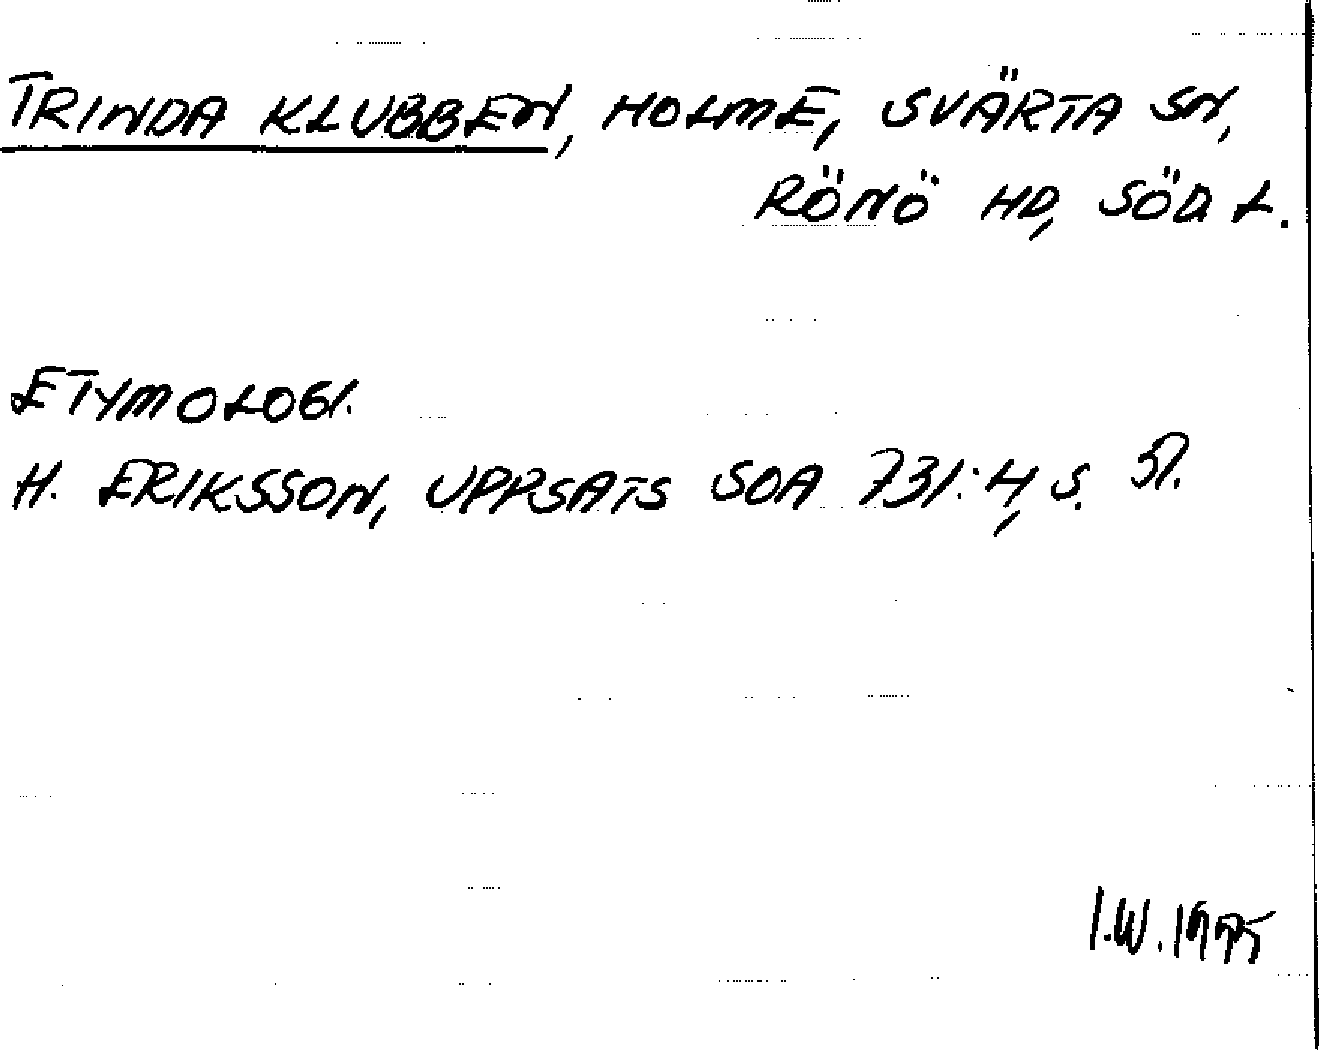 TRINDA KLUBBEN, HOLME, SVÄRTA SN,
RÖNÖ HD, SÖDL.
ETYMOLOGI.
H. ERIKSSON, UPPSATS SOA 731:4, S. 37.
I.W. 1975